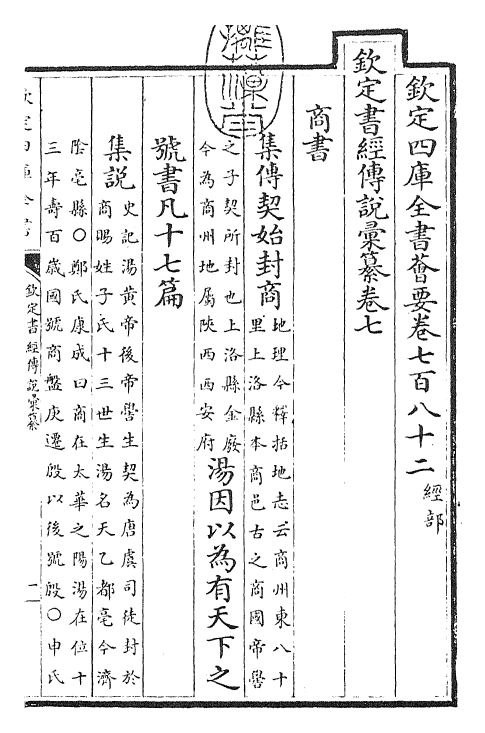 欽定四庫全書薈要卷七百八十二 經部
欽定書經傳說彙纂卷七
商書
集傳契始封商地理今釋括地志云商州東八十
里上洛縣本商邑古之商國帝嚳
之子契所封也上洛縣金廢
今為商州地屬陝西西安府湯因以為有天下之
號書凡十七篇
集説史記湯黃帝後帝嚳生契為唐虞司徒封於
商賜姓子氏十三世生湯名天乙都亳今濟
陰亳縣○鄭氏康成曰商在太華之陽湯在位十
三年壽百歲國號商盤庚遷殷以後號殷○申氏
欽定四庫全書
欽定書經傳說彙纂
一